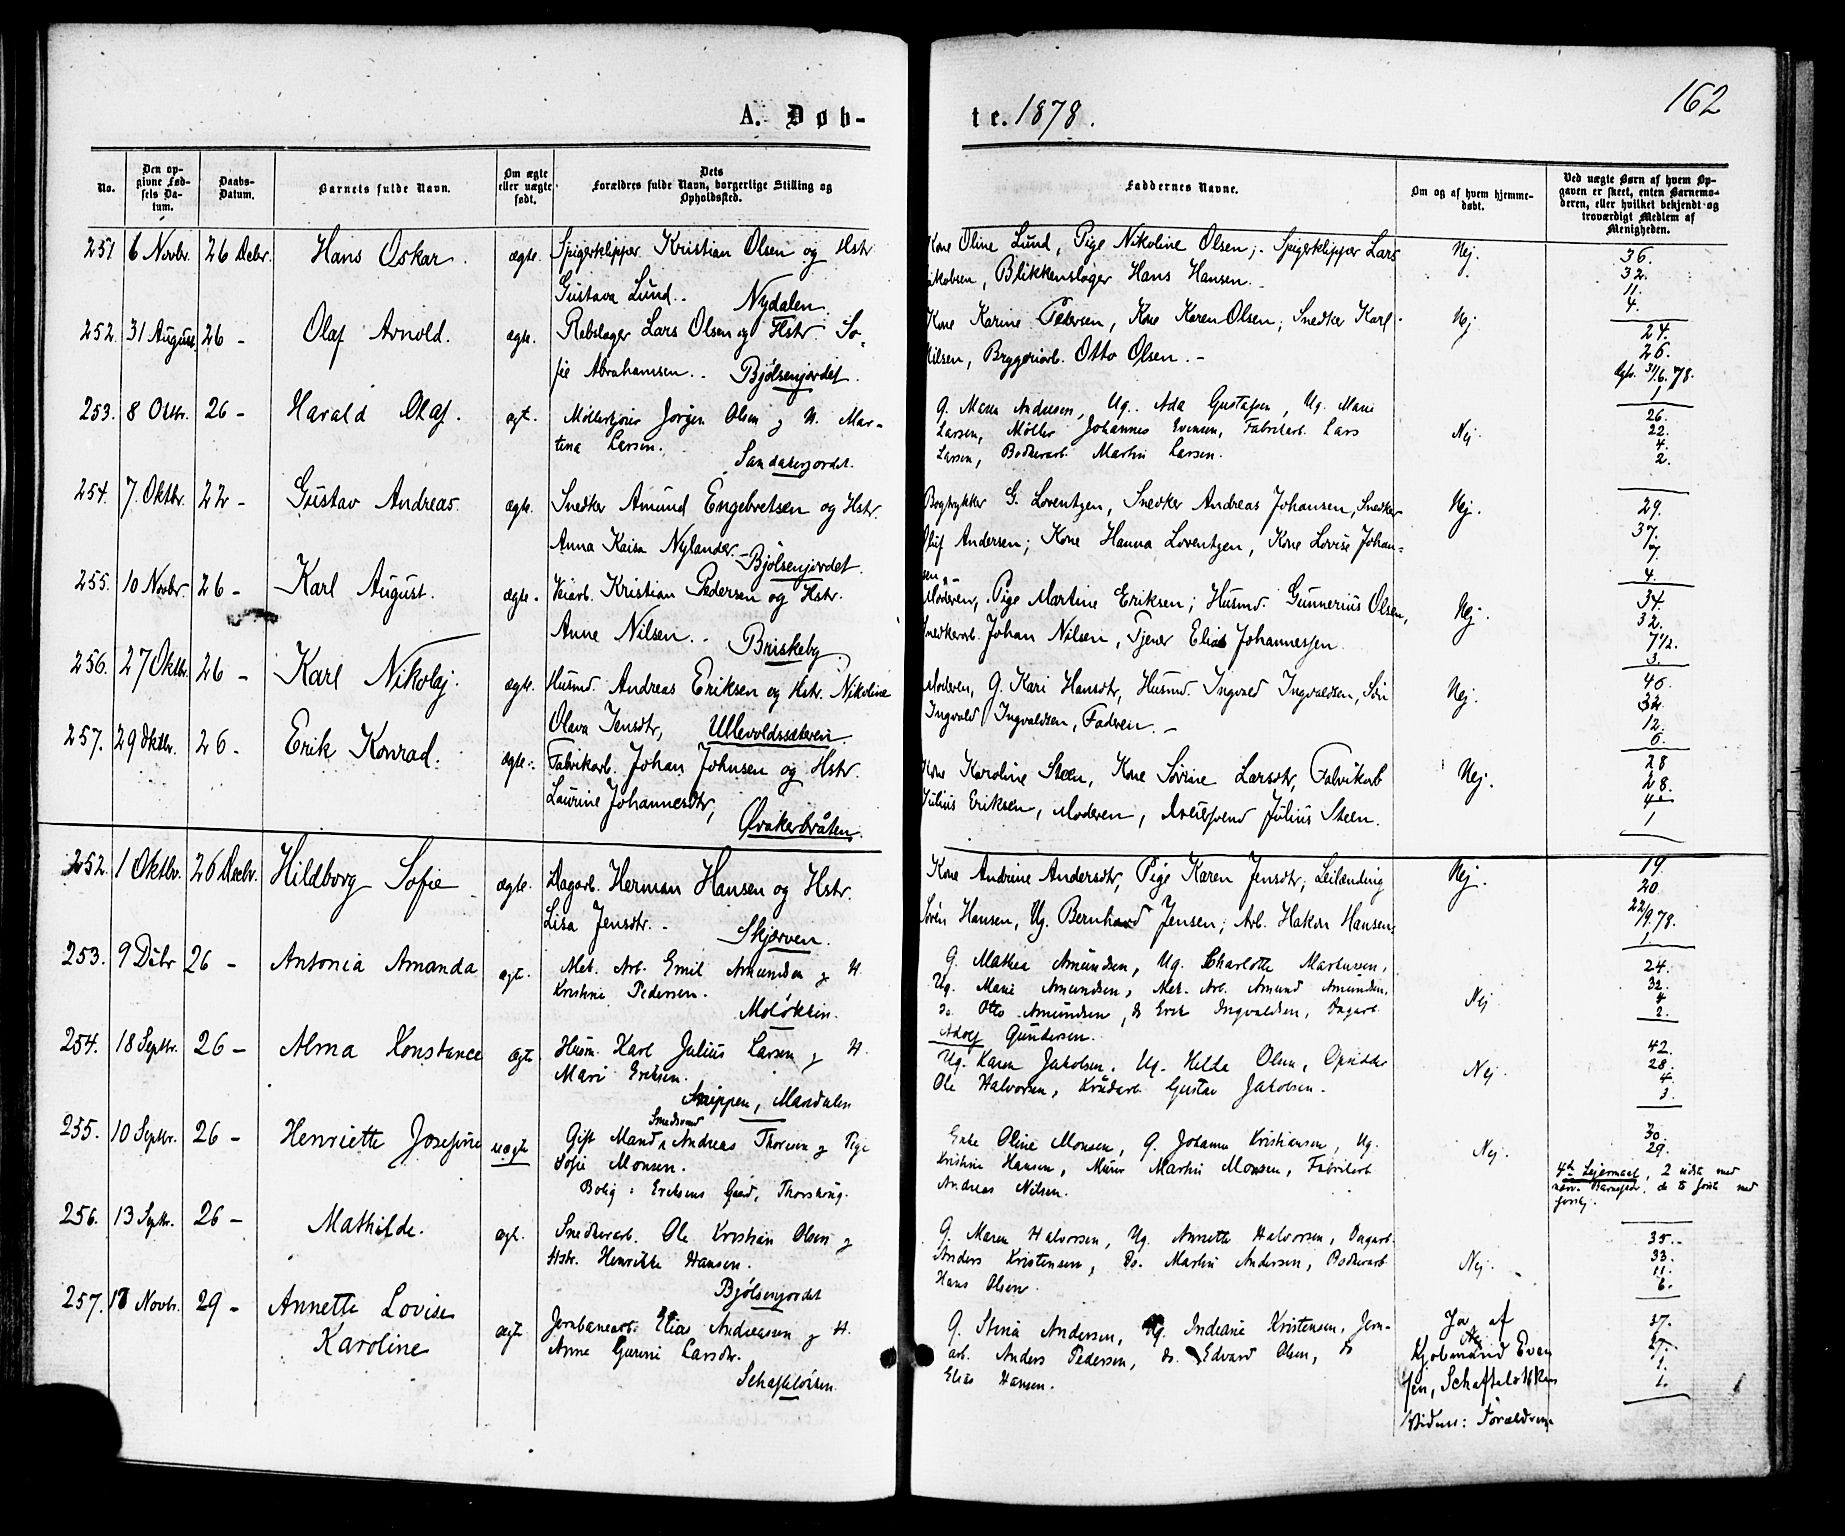 162
A. Døb-
te. 1878.
No.
Den op-
givne Fød-
sels Da-
tum.
Daabs-
Datum.
Barnets fulde Navn.
Om ægte
eller uægte
født.
Dets
Forældres fulde Navn, borgerlige Stilling og
Opholdssted.
Faddernes Navne.
Om og af hvem hjemme-
døbt.
Ved uægte Børn af hvem Op-
gaven er skeet, enten Barnemo-
deren, eller hvilket bekjendt og
troværdigt Medlem af
Menigheden.
251 6 Novbr. 26 Debr. Hans Oskar. ægte. Spigerklipper Kristian Olsen og Hstr.
Gustava Lund.. Nydalen.
Kone Oline Lund, Pige Nikoline Olsen; Spigerklipper Lars
Jakobsen, Blikkenslager Hans Hansen.
Nej.
36.
32.
11.
4.
252. 31 August 26 - Olaf Arnold. ægte. Rebslager Lars Olsen og Hstr. So-
fie Abrahamsen.. Bjølsenjordet.
Kone Karine Petersen, Kone Karen Olsen; Snedker Karl
Nilsen, Bryggeriarb. Otto Olsen. -
Nej
24.
26.
31/6. 78.
1
253. 8 Oktr. 26 - Harald Olaf. ægt. Møllerkjører Jørgen Olsen og H. Mar-
tina Larsen. Sandakerjordet.
G. Maren Andersen, Ug. Ada Gustafsen, Ug. Marie
Larsen, Møller Johannes Evensen, Fabrikarb. Lars
Larsen, Bødkerarb. Martin Larsen.
Nej.
26.
22.
4.
2.
254. 7. Oktbr. 22 - Gustav Andreas. ægte. Snedker Amund Engebretsen og Hstr.
Anna Kaisa Nylander. - Bjølsenjordet.
Bogtrykker G. Loventzen, Snedker Andreas Johansen, Snedker
Oluf Andersen; Kone Hanna Loventzen, Kone Lovise Johan-
sen. -
Nej.
29.
37.
4.
255. 10 Novbr. 26 - Karl August. ægte. Veiarb. Kristian Pedersen og Hstr.
Anne Nilsen.. Briskeby.
Moderen, Pige Martine Eriksen; Husmd. Gunnerius Olsen,
Snedkerarb. Johan Nilsen, Tjener Elias Johannessen.
Nej.
34.
32.
7 1/2.
3.
256. 27 Oktbr. 26 - Karl Nikolaj. ægte. Husmd. Andreas Eriksen og Hstr. Nikoline
Olava Jensdtr, Ullevoldssæteren.
Moderen, G. Kari Hansdtr, Husmd. Ingvald Ingvaldsen, Søn
Ingvald Ingvaldsen, Faderen. -
Nej.
46.
32.
12.
6.
257. 29 Oktbr. 26 - Erik Konrad. ægte. Fabrikarb. Johan Johnsen og Hstr.
Laurine Johannesdtr, Øvakerbråten.
Kone Karoline Steen, Kone Sørine Larsdtr, Fabrikarb
Julius Eriksen, Moderen, Julius Steen.
Nej.
28
28.
4.
1
252. 1 Oktbr. 26 Decbr. Hildborg Sofie ægte. Dagarb. Herman Hansen og Hstr.
Lisa Jensdtr. - Skjærven.
Kone Andrine Andersdtr, Pige Karen Jensdtr; Leilænding
Søren Hansen, Ug. Bernhard Jensen; Arb. Hakon Hansen.
Nej.
19.
20
22/9. 78.
1.
253. 9 Dcbr 26 - Antonia Amanda ægt. Mek. Arb. Emil Amundsen og H.
Kristine Pedersen. Moløkken.
G. Mathea Amundsen, Ug. Charlotte Martinsen,
Ug. Marie Amundsen, Mek. Arb. Amund Amundsen,
do. Otto Amundsen, do Erik Ingvaldsen, Dagarb.
Adolf Gundersen.
Nej
24.
32.
4
2.
254. 18 Septbr. 26 - Alma Konstance ægt. Husm. Karl Julius Larsen og H.
Mari Eriksen.
Snippen, Maridalen
Ug. Karen Jakobsen, Ug. Helda Olsen,
Ole Halvorsen, Krudarb. Gustav Jakobsen.
Nej.
42.
28.
4.
3.
255. 10 Septbr. 26 - Henriette Josefine uægte Gift Mand Smedsvend Andreas Thoresen og Pige
Sofie Monsen.
Bolig: Eriksens Gaard, Thorshaug.
Enke Oline Monsen, G. Johanne Kristiansen, Ug.
Kristine Hansen, Murer Martin Monsen, Fabrikarb
Andreas Nilsen.
Nej.
30.
29.
4de Leiermaal, 2 sidste med
nærv. Barnefader, de to første med
forskj.
256. 13 Septbr. 26 - Mathilde. ægt. Snedkerarb. Ole Kristian Olsen og
Hstr. Henrikke Hansen.
Bjølsenjordet
G. Maren Halvorsen, Ug. Annette Halvorsen, Dagarb.
Anders Kristensen, Do. Martin Andersen, Bødkerarb
Hans Olsen.
Nej.
35.
33.
11.
6.
257. 17 Novbr. 29 - Annette Lovise
Karoline ægt. Jernbanearb. Elias Andreassen og H.
Anne Gurine Larsdtr.
Schafteløkken.
G. Stina Andersen, Ug. Indiane Kristensen, Jern-
arb. Anders Pedersen, do. Edvard Olsen, do
Elias Hansen.
Ja, af
Kjøbmand Even
sen, Schafteløkken
Vidner: Forældrene
37.
27.
1.
1.